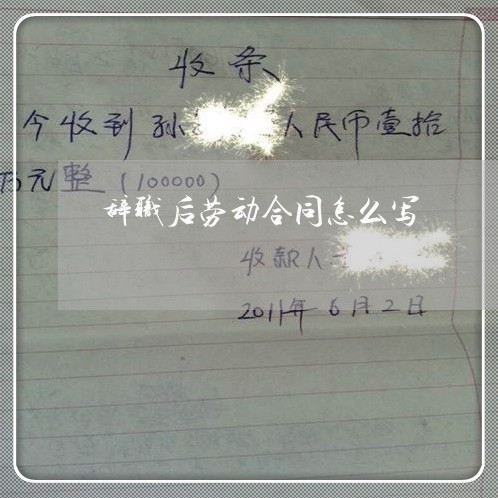 收条
今收到孙 人民币壹拾
万元整（100000）
辞职后劳动合同怎么写
收款人
2011年6月2日